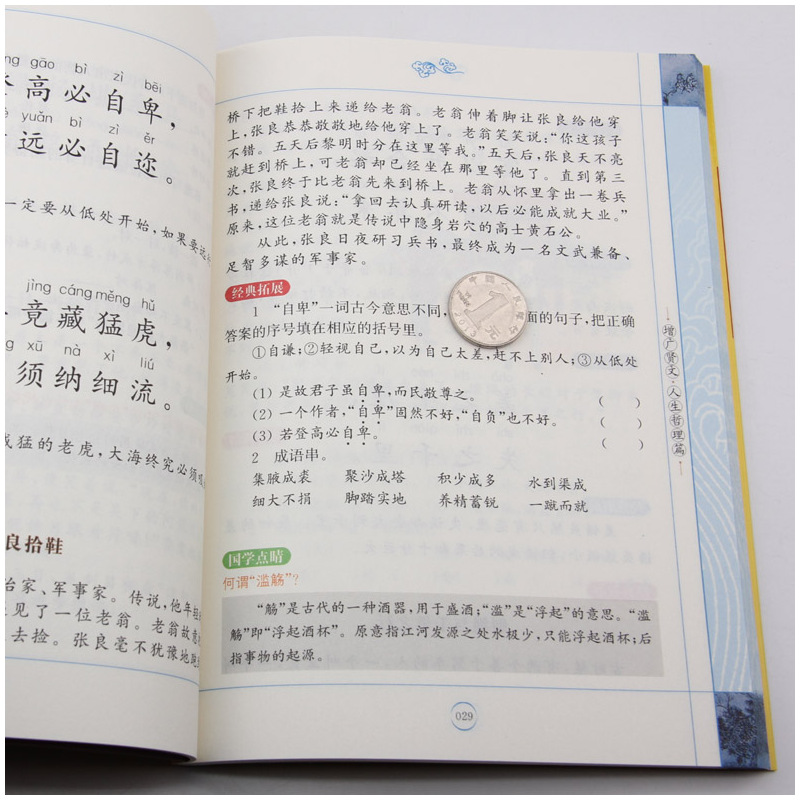 gāo bì zì bēi
高必自卑，
yuǎn bì zì ěr
远必自迩。
一定要从低处开始，如果要远
jìng cáng měng hǔ
竟藏猛虎，
xū nà xì liú
须纳细流。
猛的老虎，大海终究必须
良拾鞋
治家、军事家。传说，他年轻
见了一位老翁。老翁故意
去捡。张良毫不犹豫地跑
桥下把鞋拾上来递给老翁。老翁伸着脚让张良给他穿
上，张良恭恭敬敬地给他穿上了。老翁笑笑说：“你这孩子
不错。五天后黎明时分在这里等我。”五天后，张良天不亮
就赶到桥上，可老翁却已经坐在那里等他了。直到第三
次，张良终于比老翁先来到桥上。老翁从怀里拿出一卷兵
书，递给张良说：“拿回去认真研读，以后必能成就大业。”
原来，这位老翁就是传说中隐身岩穴的高士黄石公。
从此，张良日夜研习兵书，最终成为一名文武兼备、
足智多谋的军事家。
经典拓展
1 “自卑”一词古今意思不同，面的句子，把正确
答案的序号填在相应的括号里。
①自谦；②轻视自己，以为自己太差，赶不上别人；③从低处
开始。
(1) 是故君子虽自卑，而民敬尊之。 ( )
(2) 一个作者，“自卑”固然不好，“自负”也不好。 ( )
(3) 若登高必自卑。 ( )
2 成语串。
集腋成裘 聚沙成塔 积少成多 水到渠成
细大不捐 脚踏实地 养精蓄锐 一蹴而就
国学点睛
何谓“滥觞”？
“觞”是古代的一种酒器，用于盛酒；“滥”是“浮起”的意思。“滥
觞”即“浮起酒杯”。原意指江河发源之处水极少，只能浮起酒杯；后
指事物的起源。
029
增广贤文·人生哲理篇
中国人民银行
1元
YIYUAN
2013